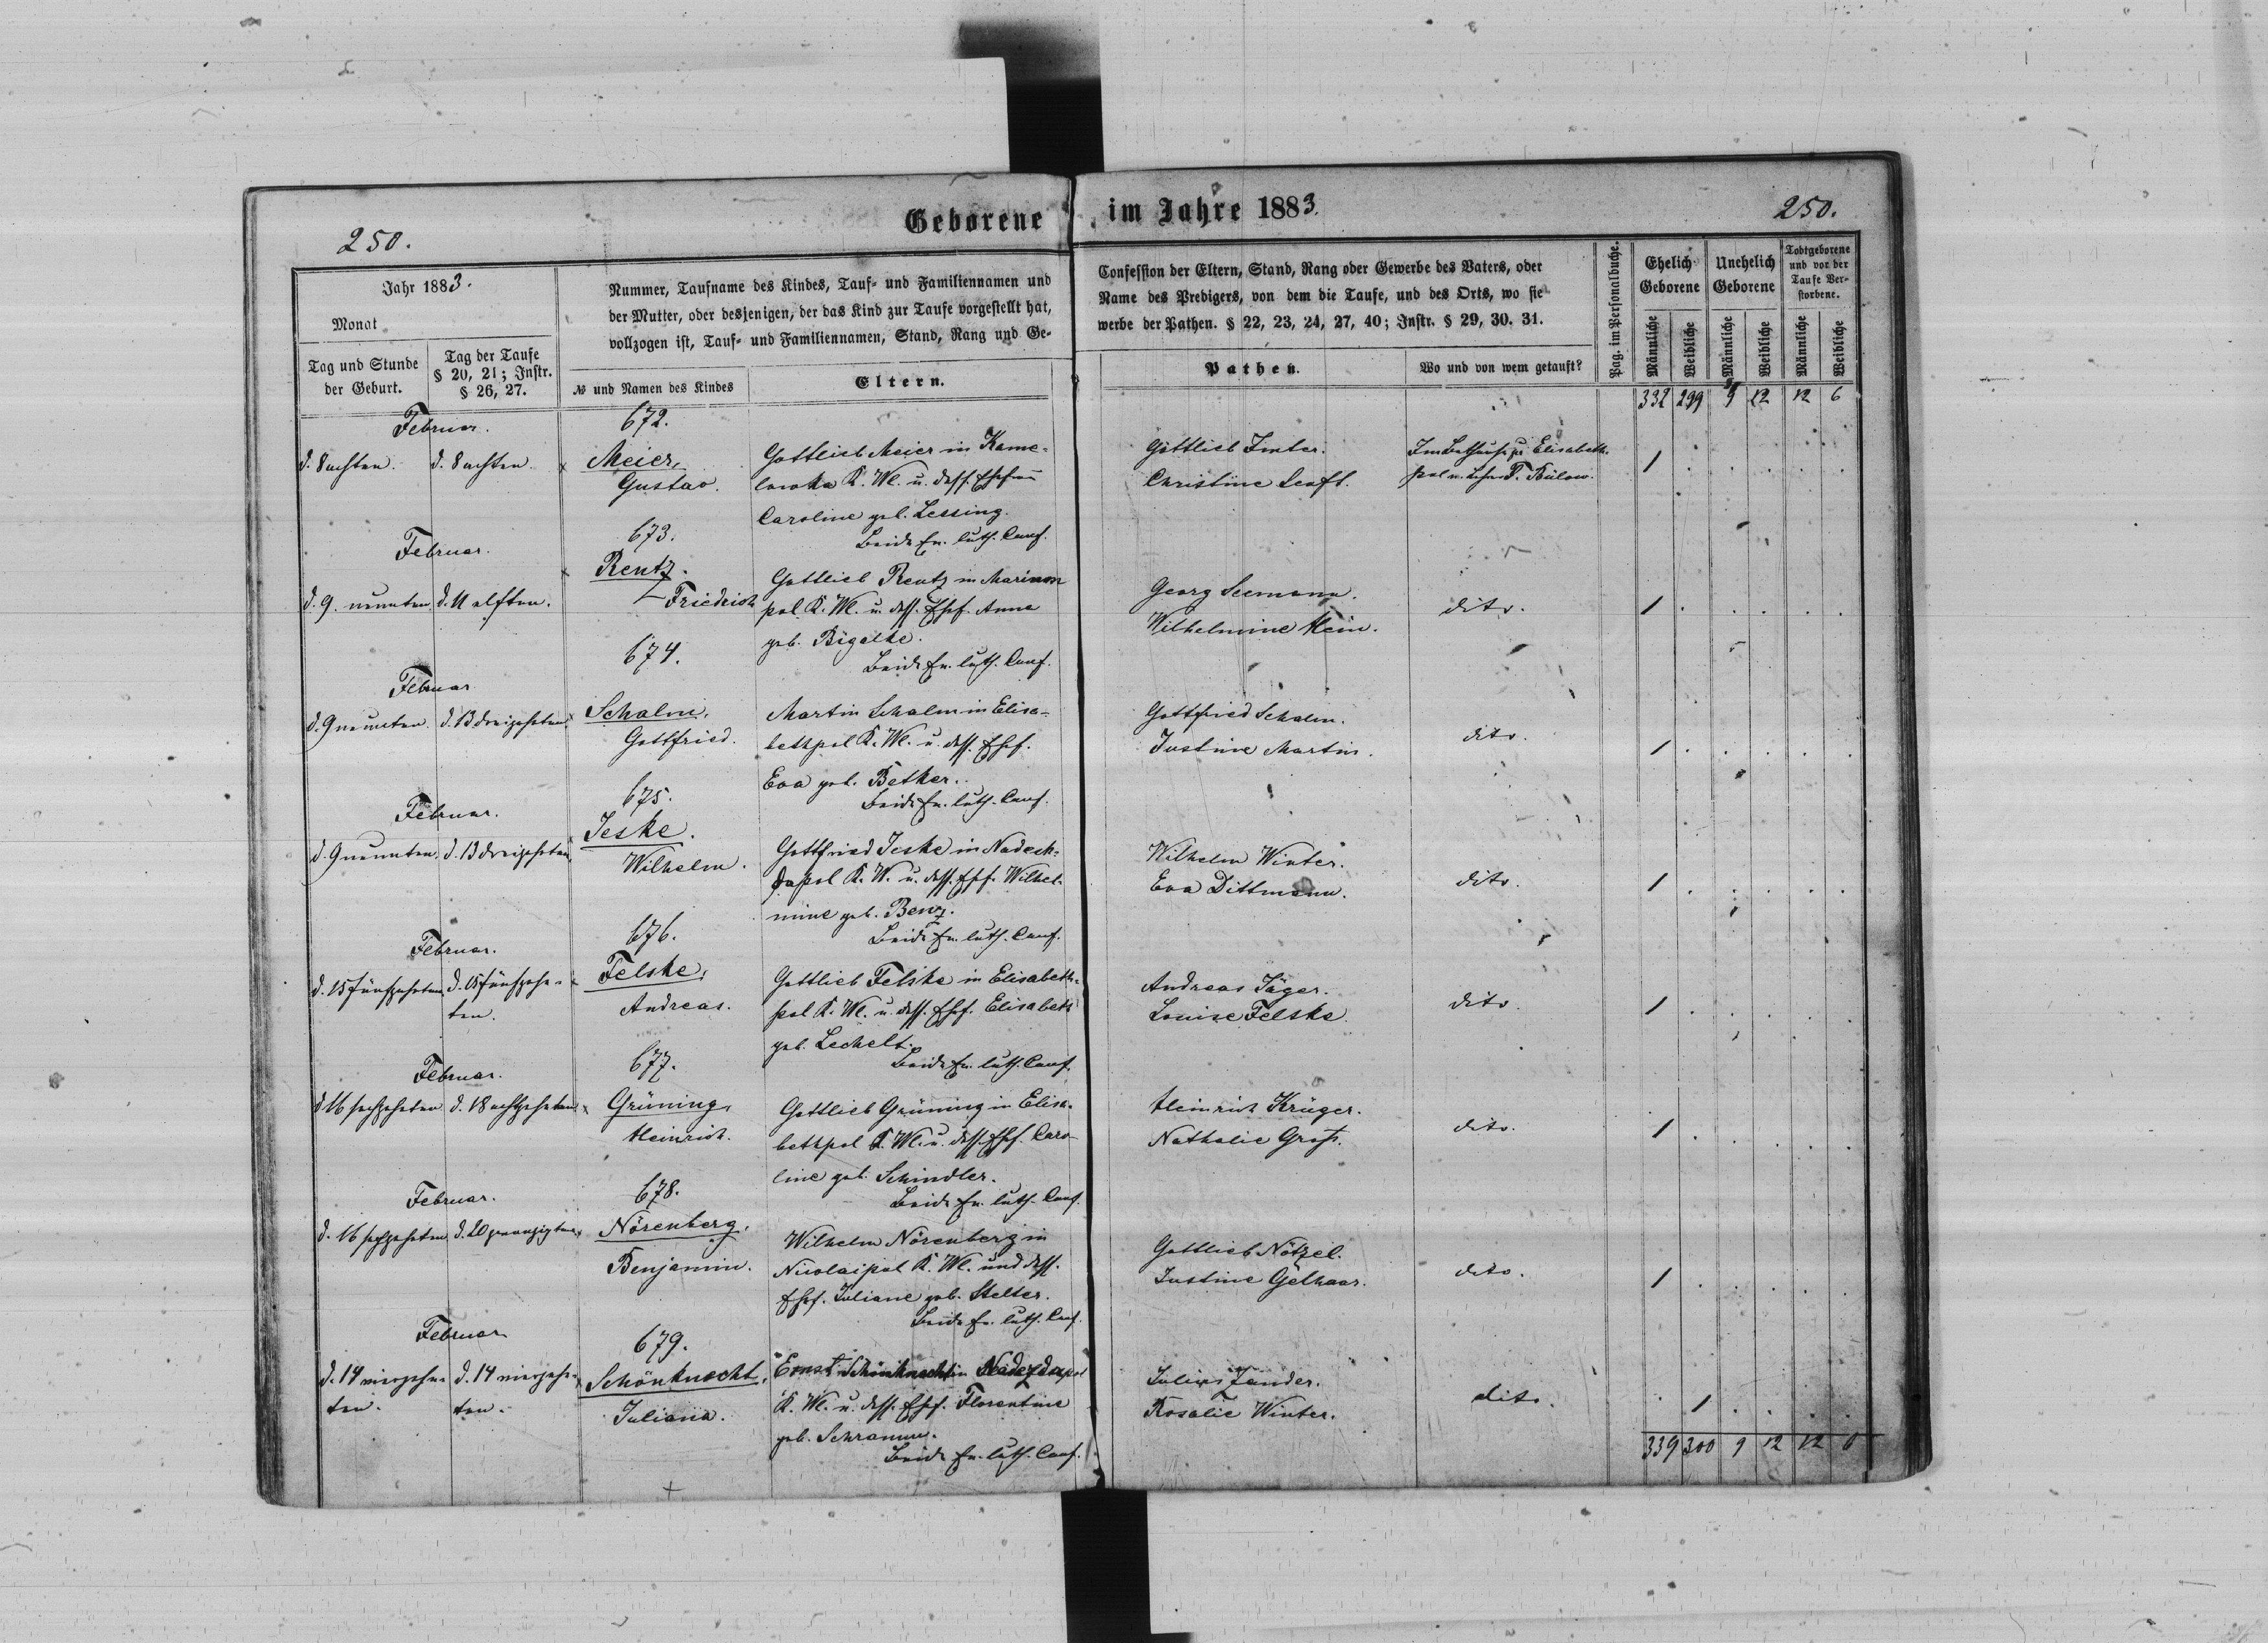 Geborene im Jahre 1883.
250.
250.
Jahr 1883.
Monat
Tag und Stunde der Geburt.
Tag der Taufe § 20, 21; Instr. § 26, 27.
Nummer, Taufname des Kindes, Tauf- und Familiennamen und
der Mutter, oder desjenigen, der das Kind zur Taufe vorgestellt hat,
vollzogen ist, Tauf- und Familiennamen, Stand, Rang und Ge-
№ und Namen des Kindes
Eltern.
Confession der Eltern, Stand, Rang oder Gewerbe des Vaters, oder
Name des Predigers, von dem die Taufe, und des Orts, wo sie
werbe der Pathen. § 22, 23, 24, 27, 40; Instr. § 29, 30. 31.
Pathen.
Wo und von wem getauft?
Pag. im Personalbuche.
Ehelich Geborene
Unehelich Geborene
Todtgeborene und vor der Taufe Verstorbene.
Männliche
Weibliche
Männliche
Weibliche
Männliche
Weibliche
332 299 9 12 12 6
Februar.
672.
d. 8 achten. d. 8 achten.
Meier,
Gustav.
Gottlieb Meier in Kame-
lowka K. Wl. u. dess. Ehefrau
Caroline geb. Lessing.
Beide Ev. luth. Conf.
Gottlieb Inter.
Christine Senft.
Im Bethause zu Elisabeth-
pol v. Lehrer T. Bülow.
1
Februar.
673.
d. 9. neunten. d. 11 elften.
Rentz.
Friedrich
Gottlieb Rentz in Marian
pol K. Wl. u. dess. Ehef. Anna
geb. Bigalke.
Beide Ev. luth. Conf.
Georg Seemann.
Wilhelmine Hein.
dito.
1
Februar
674.
d. 9 neunten. d. 13 dreizehnten.
Schalm,
Gottfried.
Martin Schalm in Elisa-
bethpol K. Wl. u. dess. Ehef.
Eva geb. Betker.
Beide Ev. luth. Conf.
Gottfried Schalm.
Justine Martin.
dito.
1
Februar.
675.
d. 9 neunten. d. 13 dreizehnten.
Jeske.
Wilhelm.
Gottfried Jeske in Nadesch-
dapol K. W. u. dess. Ehef. Wilhel-
mine geb. Benz.
Beide Ev. luth. Conf.
Wilhelm Winter.
Eva Dittmann.
dito.
1
Februar.
676.
d. 15 fünfzehnten d. 15 fünfzehn-
ten.
Felske,
Andreas.
Gottlieb Felske in Elisabeth-
pol K. Wl. u. dess. Ehef. Elisabeth
geb. Lechelt.
Beide Ev. luth. Conf.
Andreas Jäger.
Louise Felske.
dito.
1
Februar.
677.
d. 16 sechzehnten d. 18 achtzehnten
Grüning,
Heinrich.
Gottlieb Grüning in Elisa-
bethpol K. Wl. u. dess. Ehef. Caro-
line geb. Schindler.
Beide Ev. luth. Conf.
Heinrich Krüger.
Nathalie Gross.
dito.
1
Februar.
678.
d. 16 sechzehnten d. 20 zwanzigten
Nörenberg,
Benjamin.
Wilhelm Nörenberg in
Nicolaipol K. Wl. und dess.
Ehef. Juliane geb. Stelter.
Beide Ev. luth. Conf.
Gottlieb Nötzel.
Justine Gelhaar.
dito.
1
Februar
679.
d. 14 vierzehn- d. 14 vierzehn-
ten. ten.
Schönknecht,
Juliana.
Ernst Schönknecht in Nadezdapol
K. Wl. u. dess. Ehef. Florentine
geb. Schramm.
Beide Ev. luth. Conf.
Julius Zander.
Rosalie Winter.
dito.
1
339 300 9 12 12 6